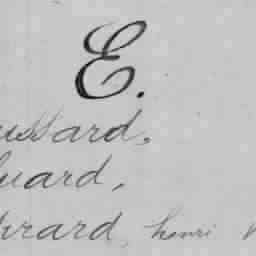 E.
ussard,
uard,
rard, henri